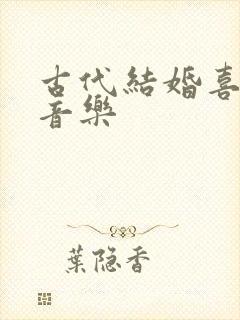 古代結婚喜
音樂
葉隐香